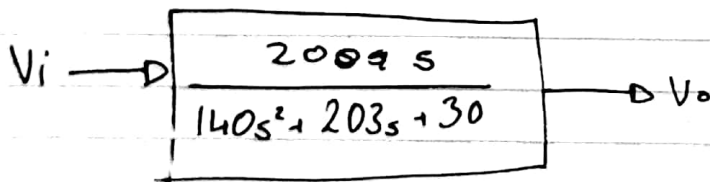 Vi
200a s
140s² + 203s + 30
Vo